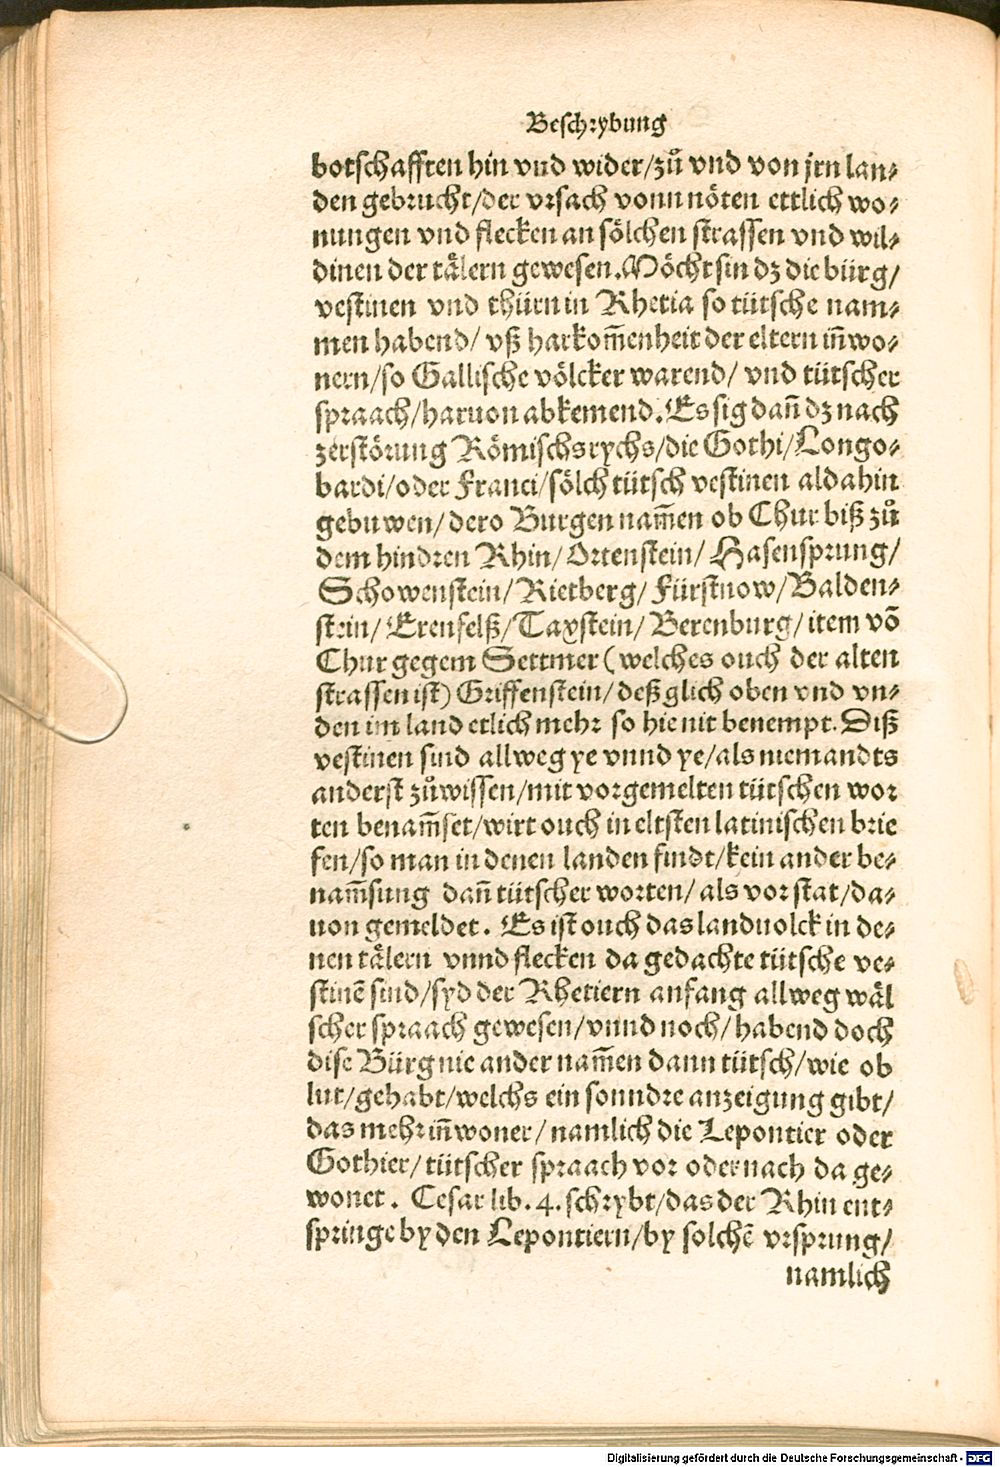 Beschrybung
botschafften hin vnd wider/zů vnd von jrn lan⸗
den gebrucht/der vrsach vonn nöten ettlich wo⸗
nungen vnd flecken an sölchen strassen vnd wil⸗
dinen der tälern gewesen. Möcht sin dz die bürg/
vestinen vnd thürn in Rhetia so tütsche nam⸗
men habend/ vß harkom̄enheit der eltern in̄wo⸗
nern/so Gallische völcker warend/ vnd tütscher
spraach/haruon abkemend. Es sig dan̄ dz nach
zerstörung Römischs rychs/die Gothi/Longo⸗
bardi/oder Franci/sölch tütsch vestinen aldahin
gebuwen/ dero Burgen nam̄en ob Chur biß zů
dem hindren Rhin/ Ortenstein/ Hasensprung/
Schowenstein/ Rietberg/ Fürstnow/ Balden⸗
stein/ Erenfelß/ Taxstein/ Berenburg/ item vō
Chur gegem Settmer (welches ouch der alten
strassen ist) Griffenstein/ deßglich oben vnd vn⸗
den im land etlich mehr so hie nit benempt. Diß
vestinen sind allweg ye vnnd ye/als niemandts
anderst zůwissen/mit vorgemelten tütschen wor
ten benam̄set/wirt ouch in eltsten latinischen brie
fen/so man in denen landen findt/kein ander be⸗
nam̄sung dan̄ tütscher worten/ als vor stat/da⸗
uon gemeldet. Es ist ouch das landuolck in de⸗
nen tälern vnnd flecken da gedachte tütsche ve⸗
stinē sind/syd der Rhetiern anfang allweg wäl
scher spraach gewesen/vnnd noch/habend doch
dise Bürg nie ander nam̄en dann tütsch/wie ob
lut/gehabt/welchs ein sonndre anzeigung gibt/
das mehr in̄woner/ namlich die Lepontier oder
Gothier/ tütscher spraach vor oder nach da ge⸗
wonet. Cesar lib. 4. schrybt/das der Rhin ent⸗
springe by den Lepontiern/by solchē vrsprung/
namlich
Digitalisierung gefördert durch die Deutsche Forschungsgemeinschaft - DFG